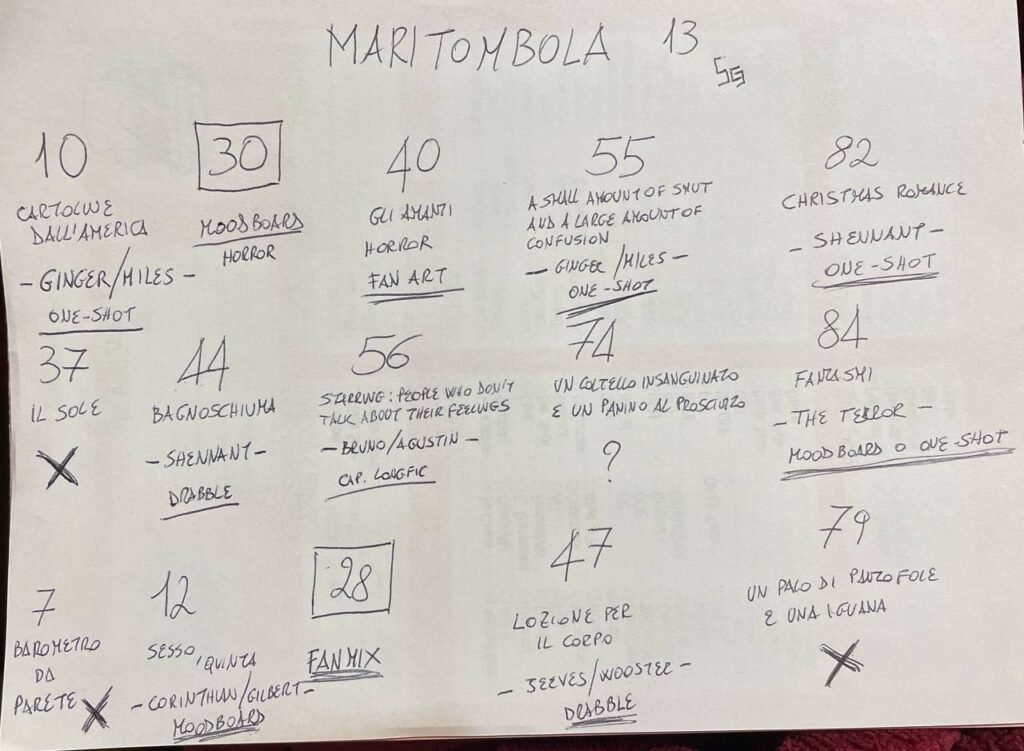 MARITOMBOLA 13
SG
10
CARTOLINE
DALL'AMERICA
- GINGER/MILES -
ONE-SHOT
30
MOODBOARD
HORROR
40
GLI AMANTI
HORROR
FAN ART
55
A SMALL AMOUNT OF SMUT
AND A LARGE AMOUNT OF
CONFUSION
- GINGER/MILES -
ONE-SHOT
82
CHRISTMAS ROMANCE
- SHENNANT -
ONE-SHOT
37
IL SOLE
X
44
BAGNOSCHIUMA
- SHENNANT -
DRABBLE
56
STARRING: PEOPLE WHO DON'T
TALK ABOUT THEIR FEELINGS
- BRUNO/AGUSTIN -
CAP. LONGFIC
74
UN COLTELLO INSANGUINATO
E UN PANINO AL PROSCIUTTO
?
84
FANTASMI
- THE TERROR -
MOODBOARD O ONE-SHOT
7
BAROMETRO
DA
PARETE X
12
SESSO
, QUINTA
- CORINTHIAN/GILBERT -
MOODBOARD
28
FANMIX
47
LOZIONE PER
IL CORPO
- JEEVES/WOOSTER -
DRABBLE
79
UN PAIO DI PANTOFOLE
E UNA IGUANA
X